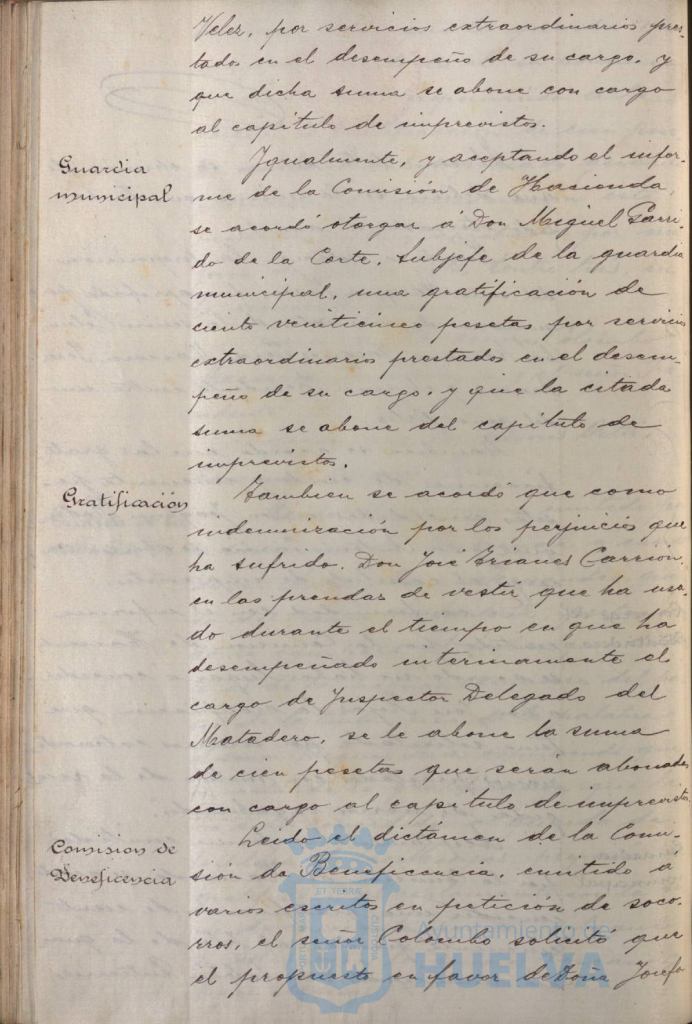 Velez, por servicios extraordinarios pres-
tado en el desempeño de su cargo, y
que dicha suma se abone con cargo
al capitulo de imprevistos.
Guardia
municipal
Igualmente, y aceptando el infor-
me de la Comisión de Hacienda,
se acordó otorgar á Don Miguel Garri-
do de la Corte, Subjefe de la guardia
municipal, una gratificación de
ciento veinticinco pesetas por servicios
extraordinarios prestados en el desem-
peño de su cargo, y que la citada
suma se abone del capitulo de
imprevistos.
Gratificación
Tambien se acordó que como
indemnización por los perjuicios que
ha sufrido, Don José Trianes Carrión,
en las prendas de vestir que ha usa-
do durante el tiempo en que ha
desempeñado interinamente el
cargo de Inspector Delegado del
Matadero, se le abone la suma
de cien pesetas que serán abonadas
con cargo al capitulo de imprevistos.
Comision de
Beneficencia
Leido el dictámen de la Comi-
sión de Beneficencia, emitido á
varios escritos en petición de soco-
rros, el señor Colombo solicitó que
el propuesto en favor de Doña Josefa
Ayuntamiento de
HUELVA